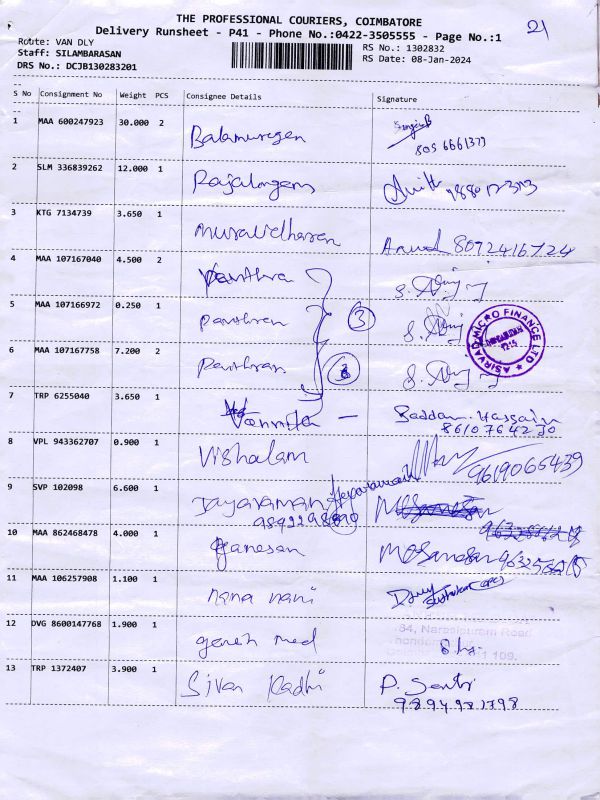 THE PROFESSIONAL COURIERS, COIMBATORE
21
Delivery Runsheet - P41 - Phone No.:0422-3505555 - Page No.:1
Route: VAN DLY
RS No.: 1302832
Staff: SILAMBARASAN
RS Date: 08-Jan-2024
DRS No.: DCJB130283201
S No Consignment No Weight PCS Consignee Details Signature
1 MAA 600247923 30.000 2 Balamurugan
805 6661379
2 SLM 336839262 12.000 1 Rajalangam
3 KTG 7134739 3.650 1 Muralidharan 8072416724
4 MAA 107167040 4.500 2 Panthra
5 MAA 107166972 0.250 1 panthren 3
6 MAA 107167758 7.200 2 Panthran
ASIRVAD MICRO FINANCE LTD
7 TRP 6255040 3.650 1 Vannila - Saddam. Hussain
8610764230
8 VPL 943362707 0.900 1 Vishalam 9619066439
9 SVP 102098 6.600 1 Jayaraman
10 MAA 862468478 4.000 1 Ganesan
11 MAA 106257908 1.100 1 nana nani
12 DVG 8600147768 1.900 1 geneh med
84, Narasipuram Road,
13 TRP 1372407 3.900 1 Sivan Kadhi
9894981798